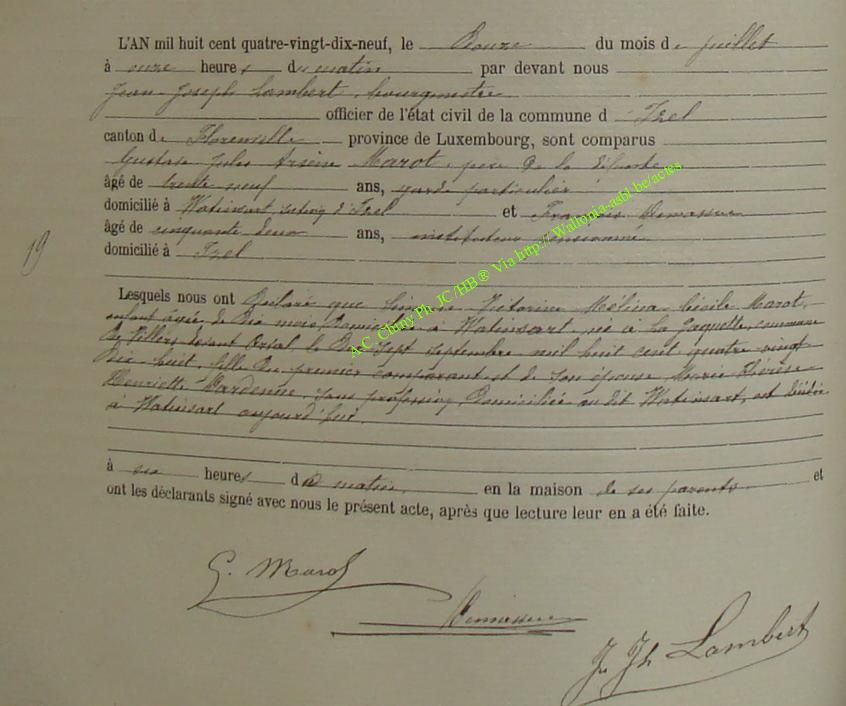 L'AN mil huit cent quatre-vingt-dix-neuf, le douze du mois de juillet
à onze heures du matin par devant nous
Jean-Joseph Lambert, bourgmestre
officier de l'état civil de la commune d'Izel
canton de Florenville province de Luxembourg, sont comparus
Gustave Jules Arsène Marot, père de la défunte,
âgé de trente neuf ans, garde particulier
domicilié à Watinsart, d'Izel et François
âgé de cinquante deux ans, instituteur pensionné
domicilié à Izel
19
Lesquels nous ont déclaré que Victorine Mélina Cécile Marot,
enfant âgée de dix mois, domiciliée à Watinsart, née à La Jaquette, commune
de Villers devant Orval, le dix sept septembre mil huit cent quatre-vingt
dix huit, fille du premier comparant et de son épouse Marie Thérèse
Henriette Dardenne, sans profession, domiciliée au dit Watinsart, est décédée
à Watinsart aujourd'hui
à six heures du matin en la maison de ses parents et
ont les déclarants signé avec nous le présent acte, après que lecture leur en a été faite.
G. Marot
J. Jh Lambert
A.C. Chiny Ph. JC/HB® Via http://Wallonia-asbl.be/actes